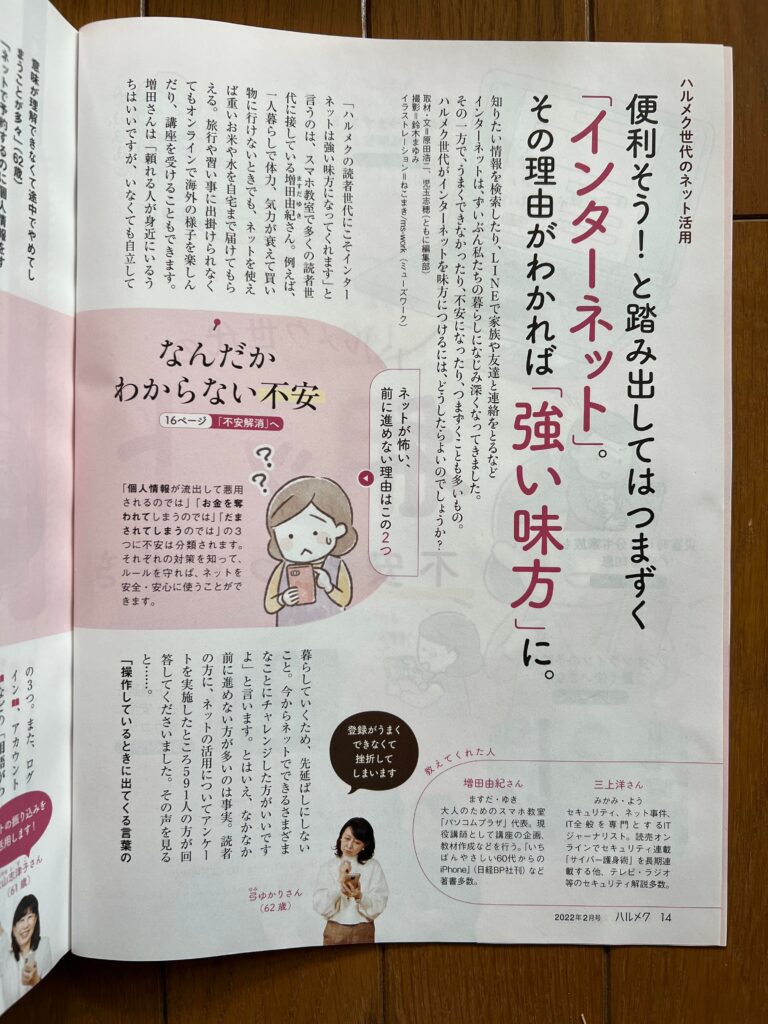 ハルメク世代のネット活用
便利そう！と踏み出してはつまずく
「インターネット」。
その理由がわかれば「強い味方」に。
知りたい情報を検索したり、LINEで家族や友達と連絡をとるなど
インターネットは、ずいぶん私たちの暮らしになじみ深くなってきました。
その一方で、うまくできなかったり、不安になったり、つまずくことも多いもの。
ハルメク世代がインターネットを味方につけるには、どうしたらよいのでしょうか？
取材・文＝原田浩二、児玉志穂（ともに編集部）
撮影＝鈴木まゆみ
イラストレーション＝ねこまき/ms-work（ミューズワーク）
「ハルメクの読者世代にこそインター
ネットは強い味方になってくれます」と
言うのは、スマホ教室で多くの読者世
代に接している増田由紀さん。例えば、
ますだ ゆき
一人暮らしで体力、気力が衰えて買い
物に行けないときでも、ネットを使え
ば重いお米や水を自宅まで届けてもら
える。旅行や習い事に出掛けられなく
てもオンラインで海外の様子を楽しん
だり、講座を受けることもできます。
増田さんは「頼れる人が身近にいるう
ちはいいですが、いなくても自立して
暮らしていくため、先延ばしにしない
こと。今からネットでできるさまざま
なことにチャレンジした方がいいです
よ」と言います。とはいえ、なかなか
前に進めない方が多いのは事実。読者
の方に、ネットの活用についてアンケー
トを実施したところ591人の方が回
答してくださいました。その声を見る
と……。
「操作しているときに出てくる言葉の
意味が理解できなくて途中でやめてし
まうことが多々」（62歳）
「ネットで予約するのに個人情報をす
ネットが怖い、
前に進めない理由はこの2つ
なんだか
わからない不安
16ページ 「不安解消」へ
？
？
「個人情報が流出して悪用
されるのでは」「お金を奪
われてしまうのでは」「だま
されてしまうのでは」の3
つに不安は分類されます。
それぞれの対策を知って、
ルールを守れば、ネットを
安全・安心に使うことがで
きます。
登録がうまく
できなくて
挫折して
しまいます
ゆみ
弓ゆかりさん
（62歳）
教えてくれた人
増田由紀さん
ますだ・ゆき
大人のためのスマホ教室
「パソコムプラザ」代表。現
役講師として講座の企画、
教材作成などを行う。「いち
ばんやさしい60代からの
iPhone」（日経BP社刊）など
著書多数。
三上洋さん
みかみ・よう
セキュリティ、ネット事件、
IT全般を専門とするIT
ジャーナリスト。読売オン
ラインでセキュリティ連載
「サイバー護身術」を長期連
載する他、テレビ・ラジオ
等のセキュリティ解説多数。
2022年2月号 ハルメク 14
の3つ。また、ログ
イン、アカウント
トの振り込みを
活用します！
志津子さん
（61歳）